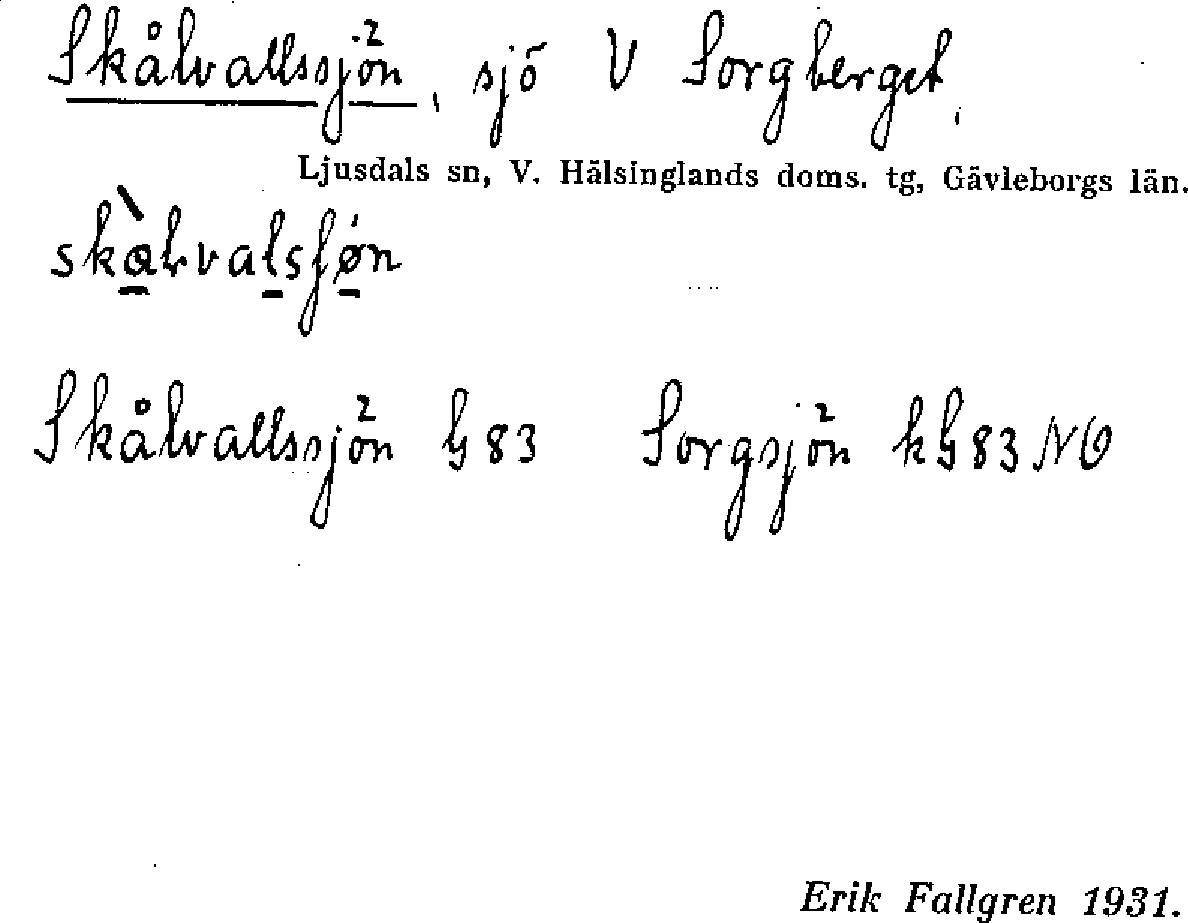 Skålvallssjön, sjö V Sorgberget.
Ljusdals sn, V. Hälsinglands doms. tg, Gävleborgs län.
Skålvallssjön G 83 Sorgsjön k G 83 NO
Erik Fallgren 1931.